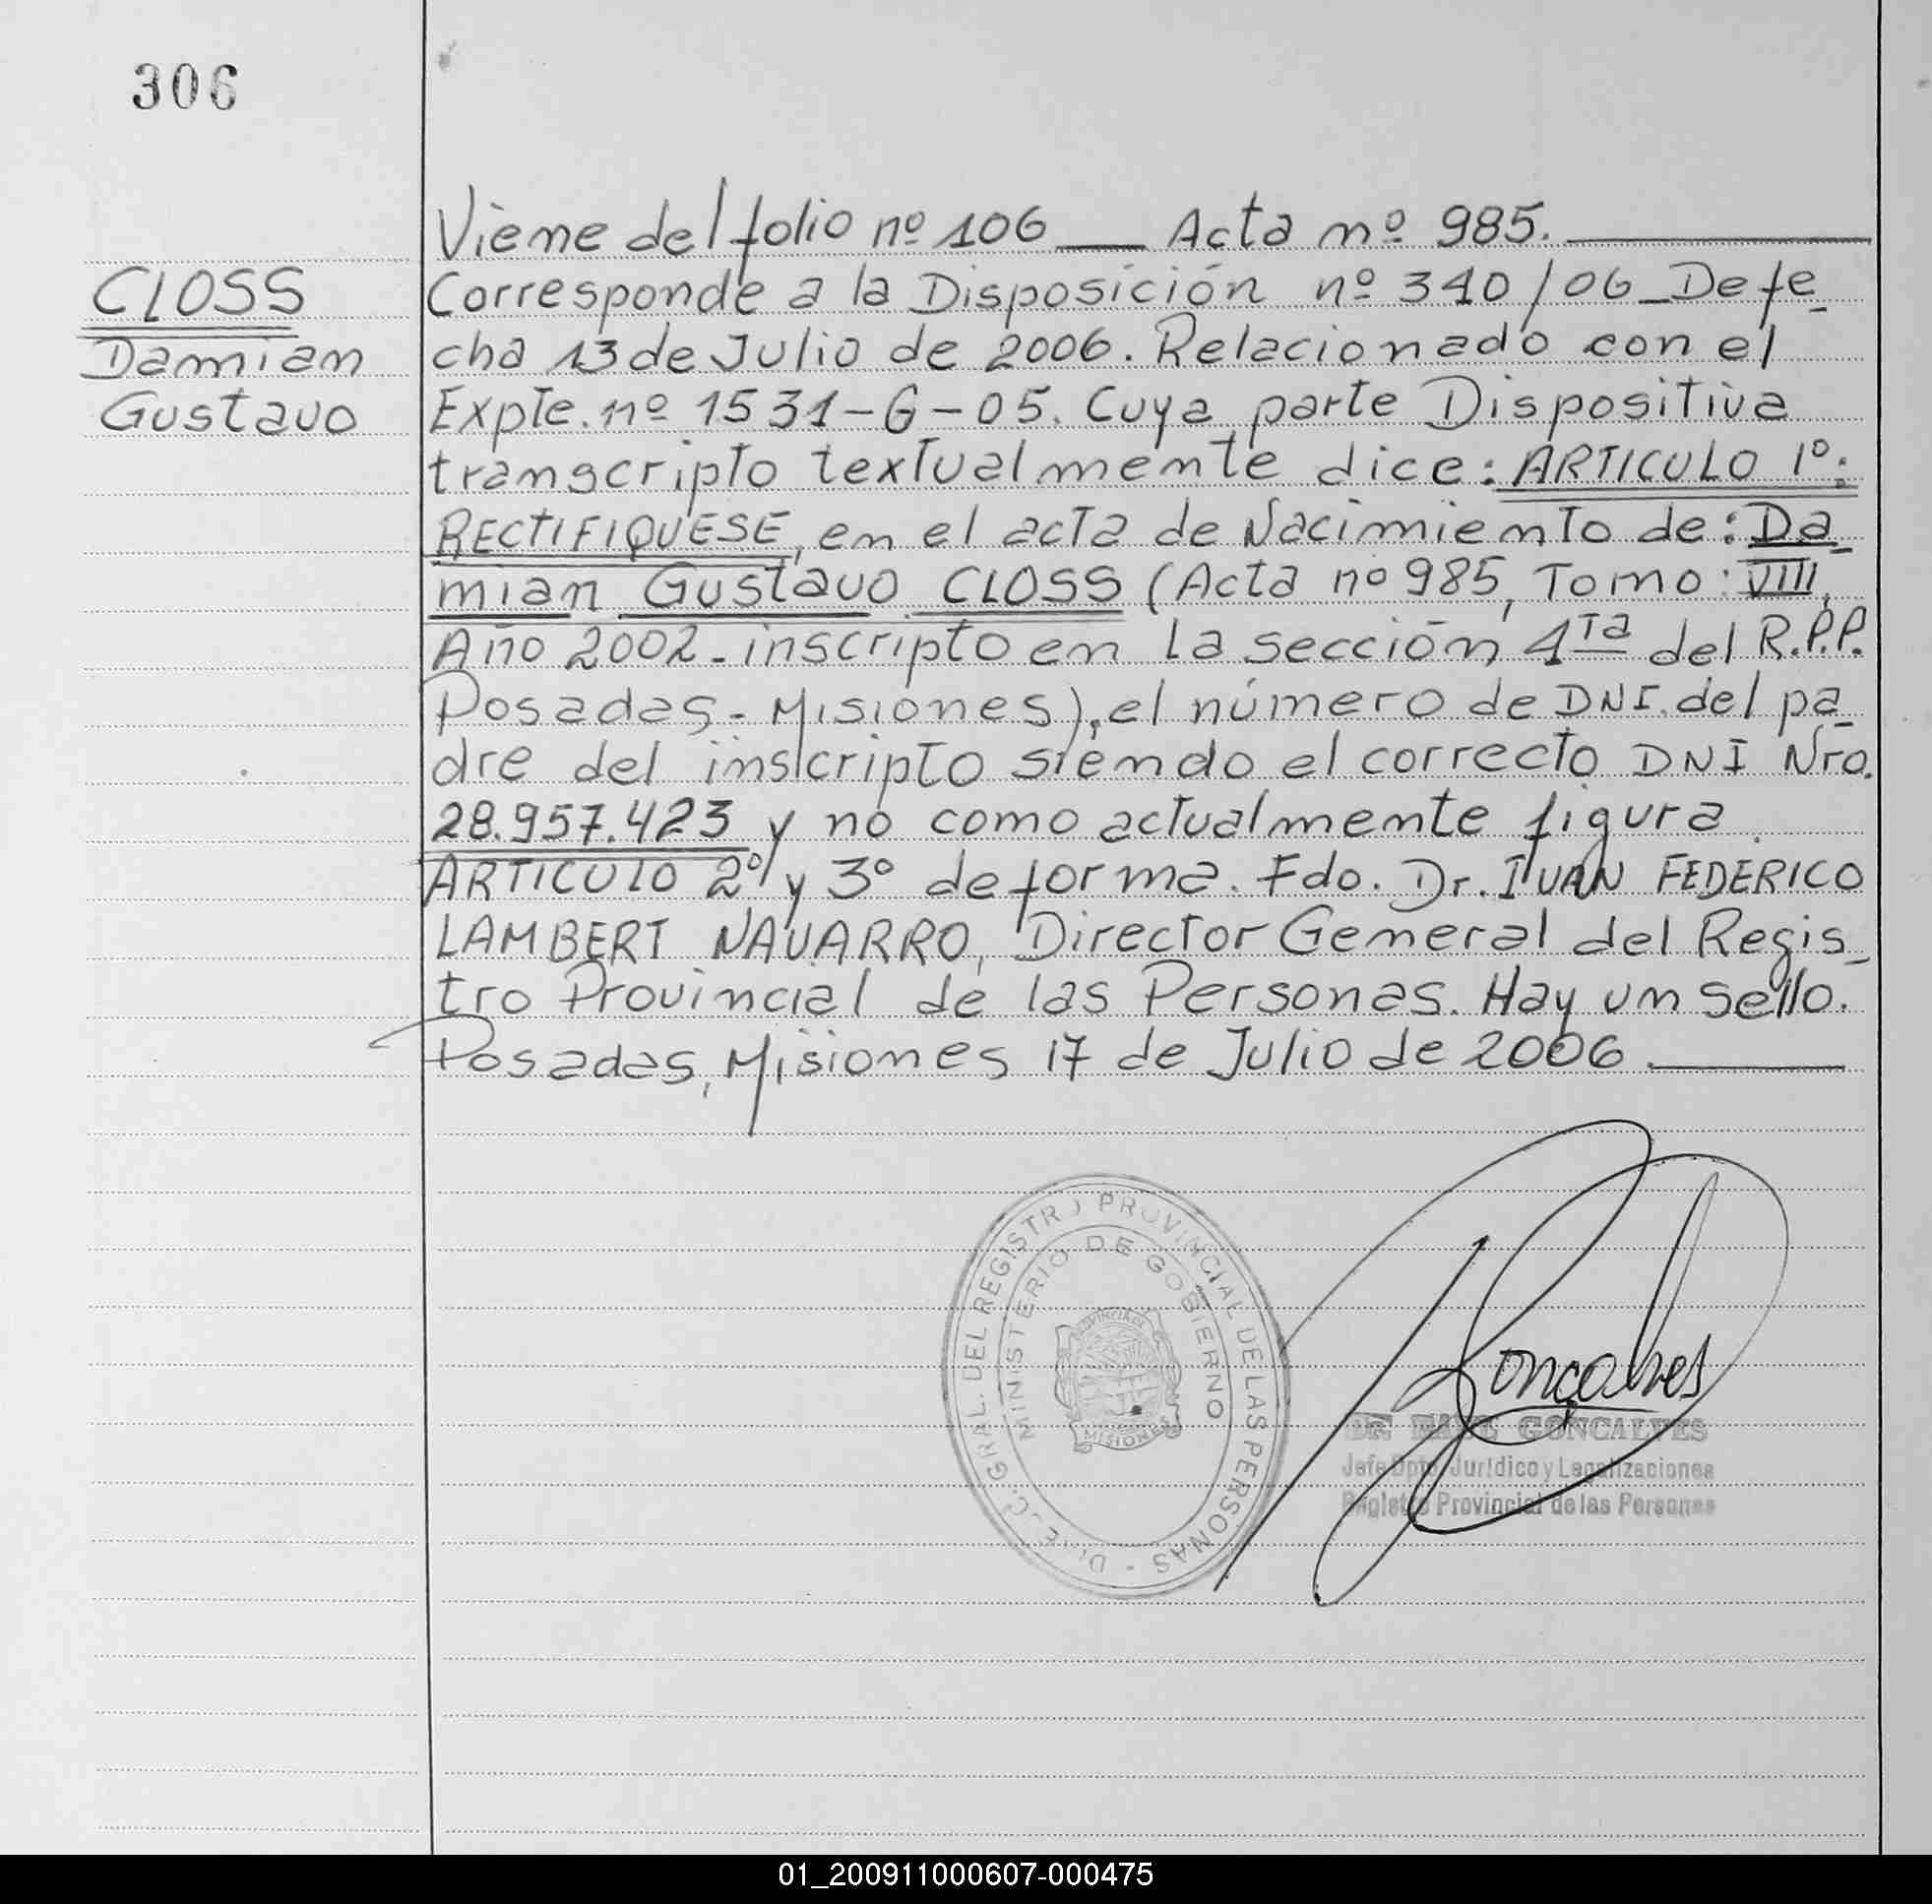 306
CLOSS
Damian
Gustavo
Viene del folio nº 106 __ Acta nº 985. ______
Corresponde a la Disposición nº 340/06_De fe_
cha 13 de Julio de 2006. Relacionado con el
Expte. nº 1531-G-05. Cuya parte Dispositiva
transcripto textualmente dice: ARTICULO 1º:
RECTIFIQUESE, en el acta de Nacimiento de: Da_
mian Gustavo CLOSS (Acta nº 985, Tomo: VIII,
Año 2002-inscripto en la sección 1ta del R.P.P.
Posadas-Misiones), el número de DNI. del pa_
dre del inscripto siendo el correcto DNI Nro.
28.957.423 y no como actualmente figura.
ARTICULO 2º y 3º de forma. Fdo. Dr. IVAN FEDERICO
LAMBERT NAVARRO, Director General del Regis_
tro Provincial de las Personas. Hay un sello.
Posadas, Misiones 17 de Julio de 2006.______
DIREC. GRAL. DEL REGISTRO PROVINCIAL DE LAS PERSONAS -
MINISTERIO DE GOBIERNO
PROVINCIA DE
MISIONES
Gonçalves
GONCALVES
Jefe Dpto. Jurídico y Legalizaciones
Registro Provincial de las Personas
01_200911000607-000475